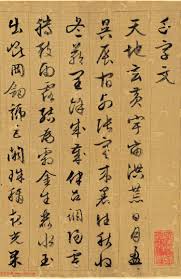 千字文
天地玄黃宇宙洪荒日月盈
昃辰宿列張寒來暑往秋收
冬藏閏餘成歲律呂調陽雲
騰致雨露結為霜金生麗水玉
出崑岡劍號巨闕珠稱夜光果